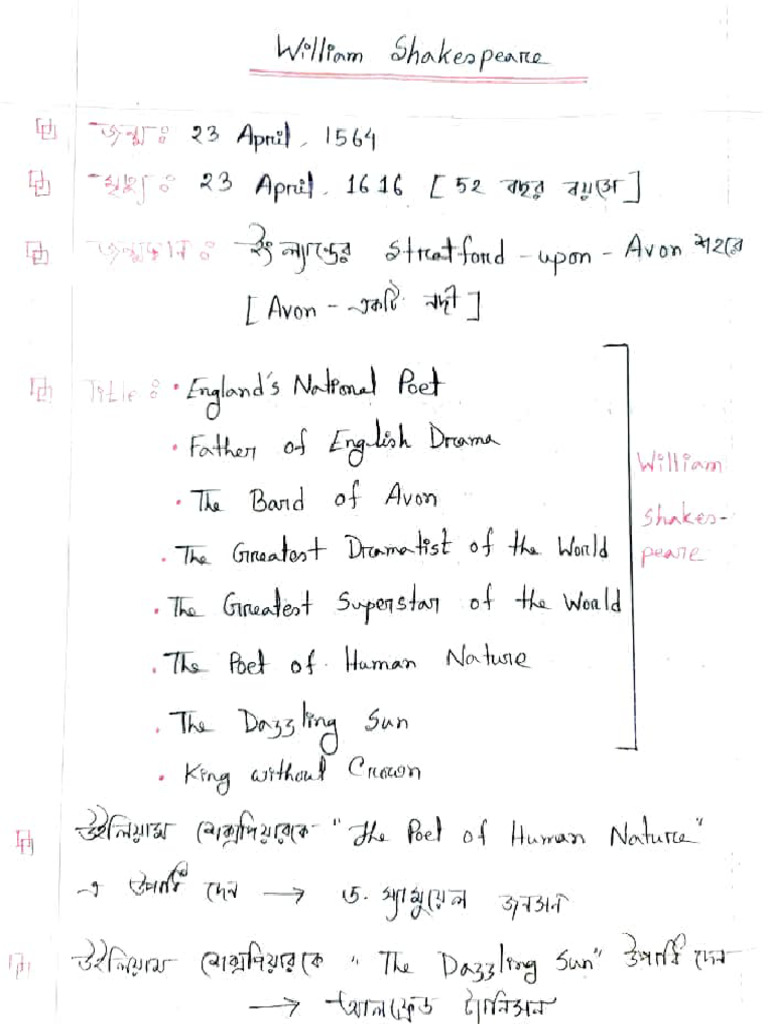 William Shakespeare
জন্ম : 23 April, 1564
মৃত্যু : 23 April, 1616 [ 52 বছর বয়সে ]
জন্মস্থান : ইংল্যান্ডের Stratford - upon - Avon শহরে
[ Avon - একটি নদী ]
Title : • England's National Poet
• Father of English Drama
• The Bard of Avon
• The Greatest Dramatist of the World
• The Greatest Superstar of the World
• The Poet of Human Nature
• The Dazzling Sun
• King without Crown
William
Shakes-
peare
উইলিয়াম শেক্সপিয়ারকে "The Poet of Human Nature"
এ উপাধি দেন → ড. স্যামুয়েল জনসন
উইলিয়াম শেক্সপিয়ারকে "The Dazzling Sun" উপাধি দেন
→ আলফ্রেড টেনিসন